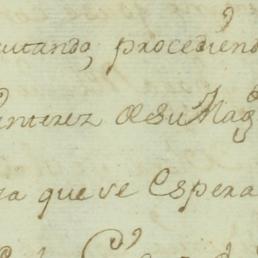 cutando, procediendo
interez de su Mag
za que se Espera